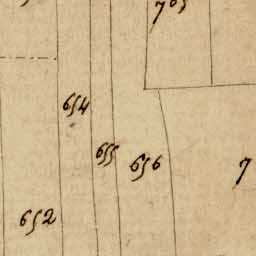 705
654
655
656
652
7